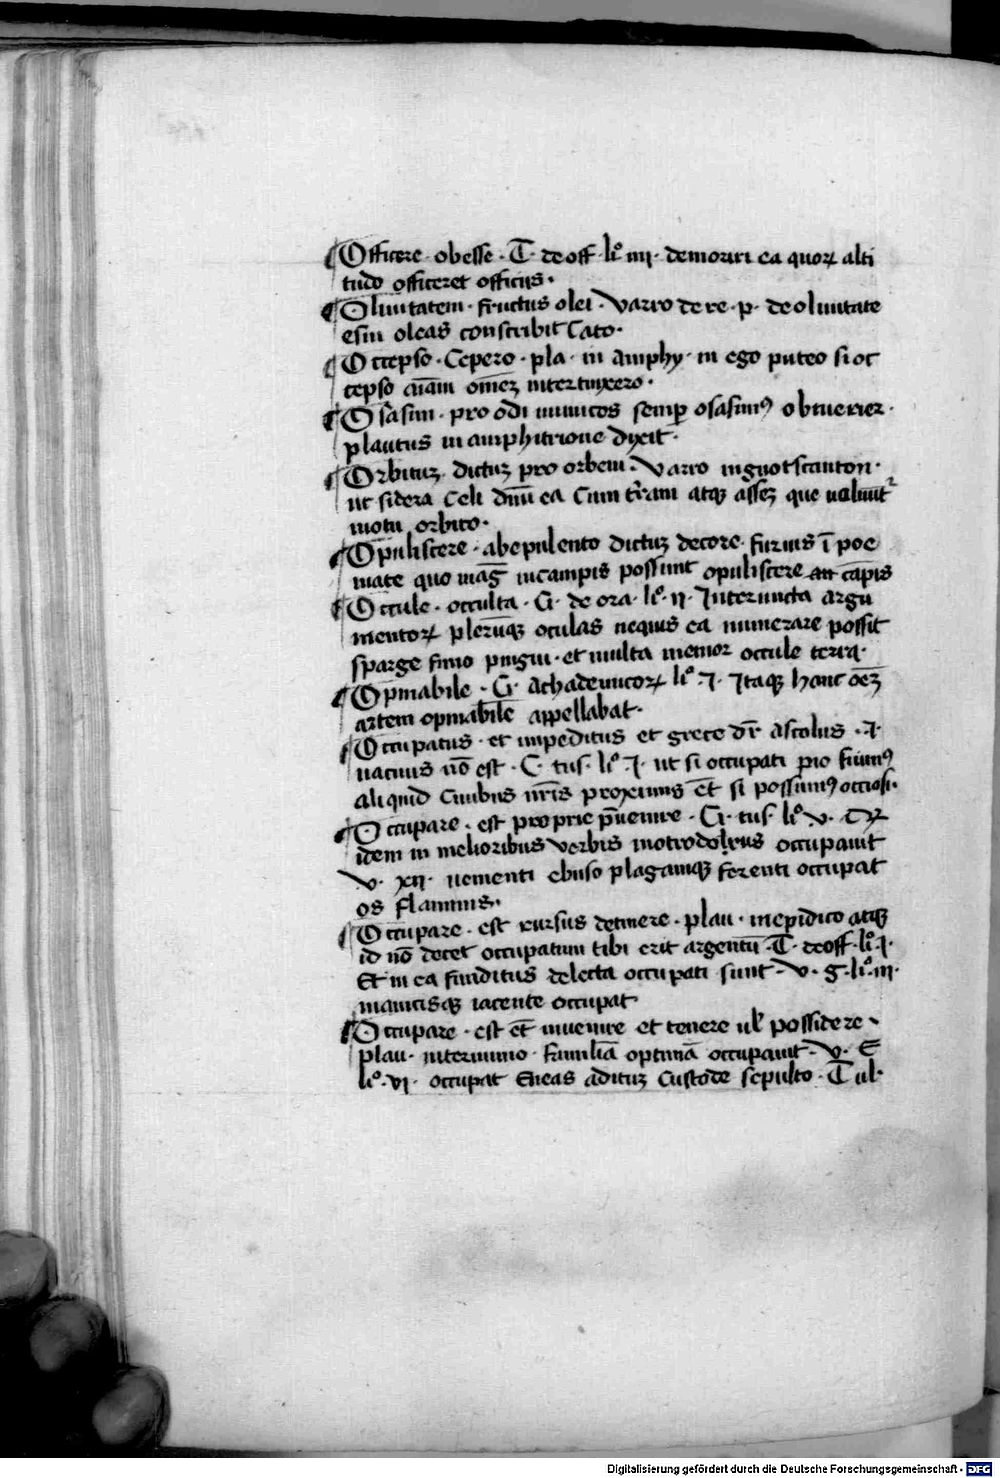 ¶Officere · obesse · T · de off · liº iiii · demoliri ea quoꝝ alti
tudo officeret officijs ·
¶Oliuitatem · fructus olei · Varro de re · p · de oliuitate
esui oleas conscribit Cato ·
¶Occepso · Cepero · pla · in amphy · in ego puteo si oc
cepso aīam om̄eʒ intertinxero ·
¶Osasim · pro odi inimicos semp̄ osasimꝰ obtuerier ·
plautus in amphitrione dixit ·
¶Orbituʒ · dictuʒ pro orbem · Varro
ut sidera celi ea Cum t̄ram atqʒ que
motu orbito ·
¶Opuliscere · ab epulento dictuʒ decore · furius ī poe
mate quo mag̅ in campis possunt opuliscere cāpis
¶Occule · occulta · C · de ora · liº · ij · Interiuncta argu
mentoꝝ plerūqʒ oculas nequis ea numerare possit
sparge fimo pingui · et multa memor occule terra ·
¶Opinabile · C · Achademicoꝝ liº · j · Itaqʒ hanc oēʒ
artem opinabile appellabat ·
¶Occupatus · et impeditus et grece dr̄ ascolus · i ·
uacuus nō est · C · tus · liº · j · ut si occupati pro fuimꝰ
aliquid Ciuibus nr̄is proximis et̄ si possumꝰ occiosi ·
¶Occupare · est proprie p̄uenire · C · tus · liº · v ·
idem in melioribus verbis metrodorus occupauit
V · xij · uementi ebuso plagamqʒ ferenti occupat
os flammis ·
¶Occupare · est rursus detinere · plau · in epidico atqʒ
id nō decet occupatum tibi erit argentū · T · de off · liº · j ·
Et in ea funditus delecta occupati sunt · V · g · liº · iii ·
manicisqʒ iacente occupat
¶Occupare · est et̄ inuenire et tenere ul̄ possidere ·
plau · familiā optimā occupauit · V · E
liº · vj · occupat Eneas adituʒ Custode sepulto · Tul ·
Digitalisierung gefördert durch die Deutsche Forschungsgemeinschaft - DFG